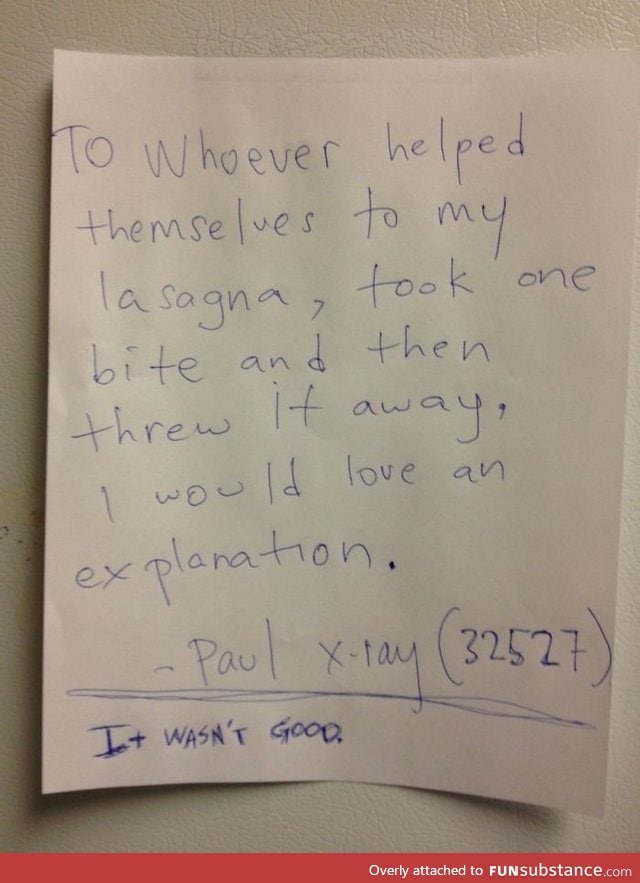 To Whoever helped
themselves to my
lasagna, took one
bite and then
threw it away,
I would love an
explanation.
- Paul x-ray (32527)
It WASN'T GOOD.
Overly attached to FUNsubstance.com